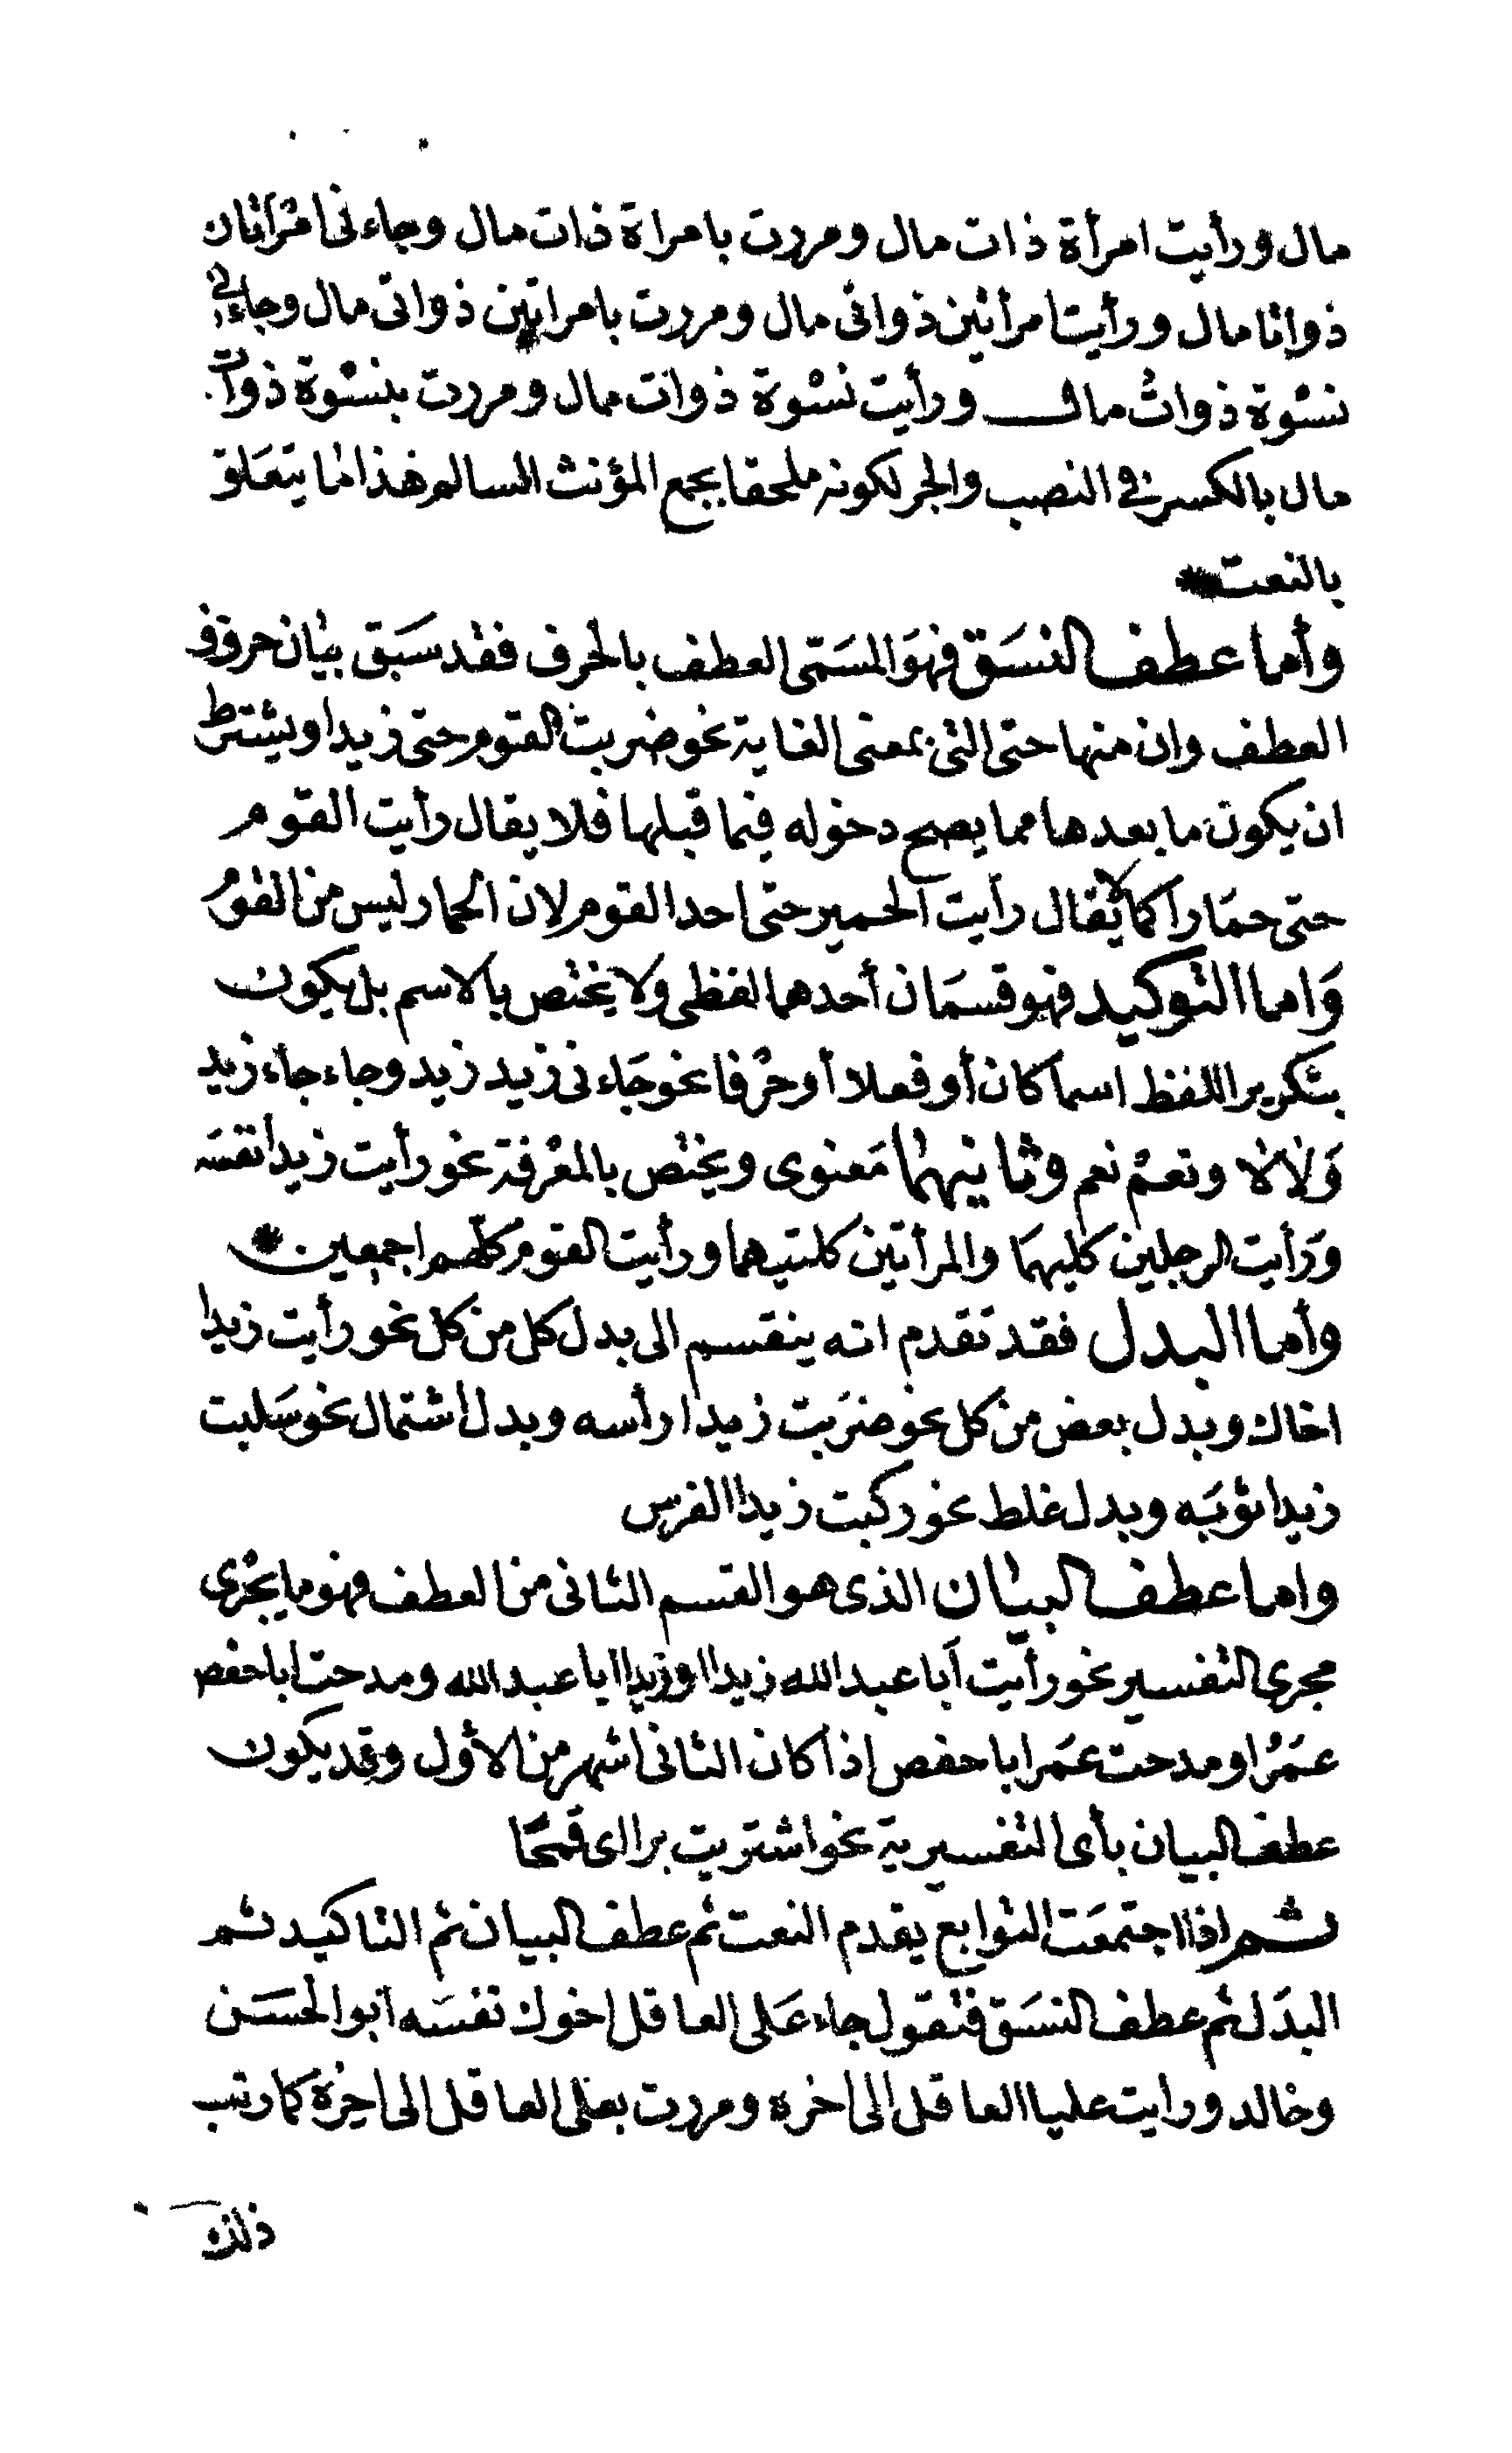 مال ورأيت امرأة ذات مال ومررت بامراة ذات مال وجاءنى امْرَأتان
ذواتا مال ورأيت امرأتين ذواتى مال ومررت بامراتين ذواتى مال وجاءنى
نسْوة ذواتُ مال ورأيت نسْوة ذوات مال ومررت بنسْوة ذوات
مال بالكسر فى النصب والجر لكونه ملحقا بجمع المؤنث السالم هذا ما يتعَلق
بالنعت
وأما عطف النسَق فهوَ المسَمّى العطف بالحرف فقد سَبق بيَان حروف
العطف وان منها حتى التى بمعنى الغاية نحو ضربت القوم حتى زيدا ويشترط
ان يكون ما بعدها مما يصح دخوله فيما قبلها فلا يقال رأيت القوم
حتى حمَارا كما لا يُقال رأيت الحمير حتى احد القوم لان الحمار ليس من القوم
وَاما التوكيد فهو قسمَان أحدهما لفظى ولا يختص بالاسم بل يكون
بتَكرير اللفظ اسما كان أو فعلا أو حرْفا نحو جَاءنى زيد زيد وجاء جاء زيد
وَلا لا ونعمْ نعم وثانيهما مَعنوى ويختص بالمعْرفة نحو رأيت زيدا نفسَه
وَرَأيت الرجلين كليهمَا والمرأتين كلتيهما ورأيت القوم كلّهم اجمعين
وأما البدل فقد تقدم انه ينقسم الى بدل كل من كل نحو رأيت زيدا
اخاك وبدل بعض من كل نحو ضرَبت زيدا رأسه وبدل اشتمال نحو سَلبت
زيدا ثوبَه وبدل غلط نحو ركبت زيدا الفرس
واما عطف البيان الذى هو القسم الثانى من العطف فهو ما يجْرى
مجرى التفسير نحو رأيت أبا عبد الله زيدا او زيدا ابا عبد الله ومدحت ابا حفص
عمَرُا ومدحت عمَرا ابا حفص اذا كان الثانى اشهر من الأول وقد يكون
عطف البيان بأى التفسيرية نحو اشتريت برا اى قمحًا
ثم اذا اجتمعَت التوابع يقدم النعت ثم عطف البيان ثم التاكيد ثم
البدَل ثم عطف النسَق فتقول جاء عَلى العاقل اخوك نفسَه ابو الحسَن
وخالد ورايت عليا العاقل الى اخره ومررت بعلى العاقل الى اخِرهَ كما رتب
ذلك